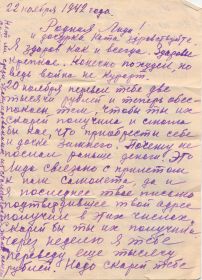 22 ноября 1942 года.
Родная Лида!
и дочурка Ната здравствуйте
Я здоров как и всегда. Здоровье
крепкое. Конечно похудел, но
ведь война не курорт.
20 ноября перевел тебе две
тысячи рублей и теперь обес-
покоен тем, чтобы ты их
скорей получила и смогла
бы как, что приобрести себе
и дочке зимнего. Почему не
послал раньше деньги. Это
Лида связано с прилетом
к нам самолета, да и
последнее твое письмо
подтвердившее твой адрес
получил в этих числах.
Скорей бы ты их получила
Через неделю я тебе
переведу еще тысячу
рублей. Надо скорей тебе